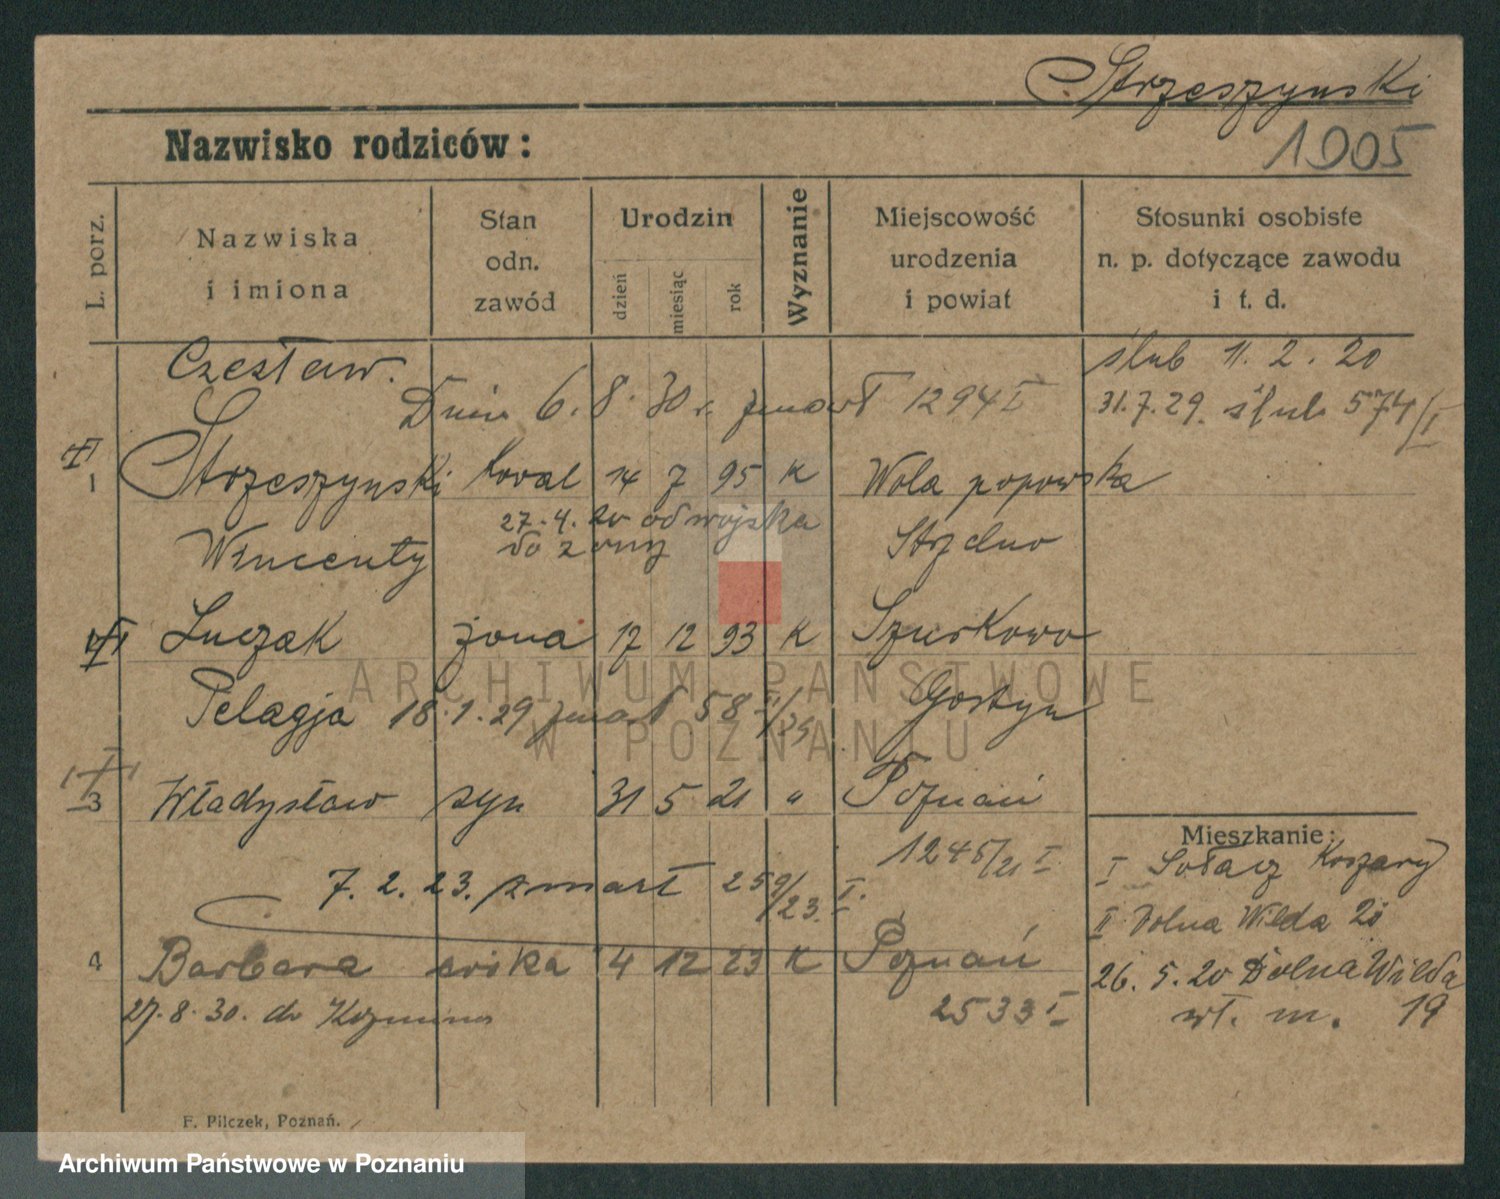 Strzeszynski
1905
Nazwisko rodziców:
L. porz.
Nazwiska
i imiona
Stan
odn.
zawód
Urodzin
dzień
miesiąc
rok
Wyznanie
Miejscowość
urodzenia
i powiat
Stosunki osobiste
n. p. dotyczące zawodu
i t. d.
Czesław.
ślub 11. 2. 20
Dnia 6. 8. 30 r. zmarł 1294 I
31.7.29. ślub 574/I
1 Strzeszynski kowal 14 7 95 K Wola popowska
27. 4. 20 od wojska
do żony
Wincenty
Strzelno
Luczak żona 17 12 93 K Szurkowo
Pelagja 18.1.29 zmarł 58 II/29
Gostyn
3 Władysław syn 31 5 21 " Poznań
1245/21 I
Mieszkanie:
I Sołacz Koszary
7. 2. 23. zmarł 259/23. I.
II Dolna Wilda 20
4 Barbara córka 4 12 23 K Poznań
26. 5. 20 Dolna Wilda
27. 8. 30. do Kozmina
2533 I
wł. m. 19
F. Pilczek, Poznań.
ARCHIWUM PAŃSTWOWE
W POZNANIU
Archiwum Państwowe w Poznaniu